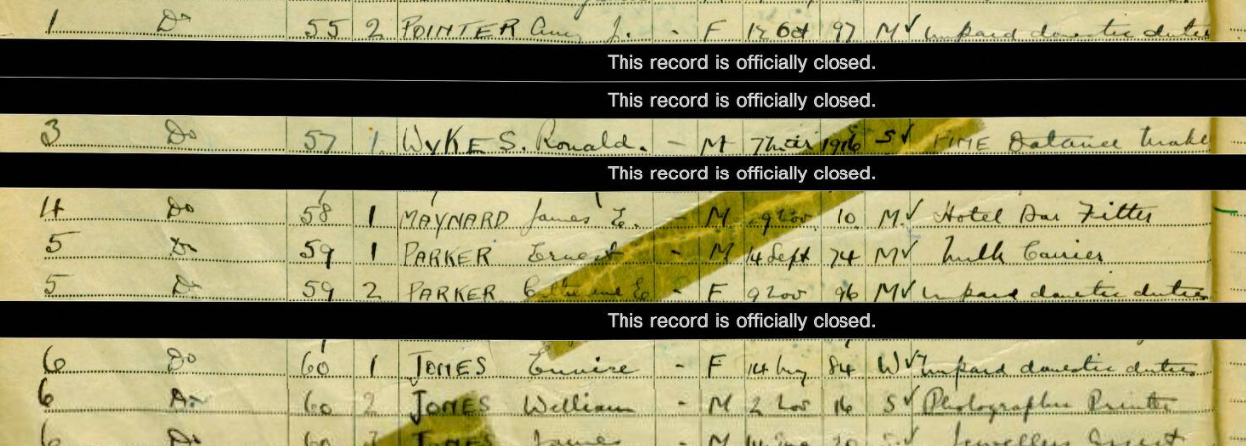 1 Do 55 2 POINTER Amy J. - F 12 Oct 97 M✓ unpaid domestic duties
This record is officially closed.
This record is officially closed.
3 Do 57 1 WYKES. Ronald. - M 7 Mar 1916 S✓ Distance
This record is officially closed.
4 Do 58 1 MAYNARD James E. - M 9 Nov 10 M✓ Hotel Bar Fitter
5 Do 59 1 PARKER Ernest - M 4 Sept 74 M✓ Milk Carrier
5 Do 59 2 PARKER - F 9 Nov 96 M✓ unpaid domestic duties
This record is officially closed.
6 Do 60 1 JONES - F 14 84 W✓ Unpaid domestic duties
6 Do 60 2 JONES William - M 2 Nov 16 S✓ Photographer Printer
6 Do 60 3 JONES James - M